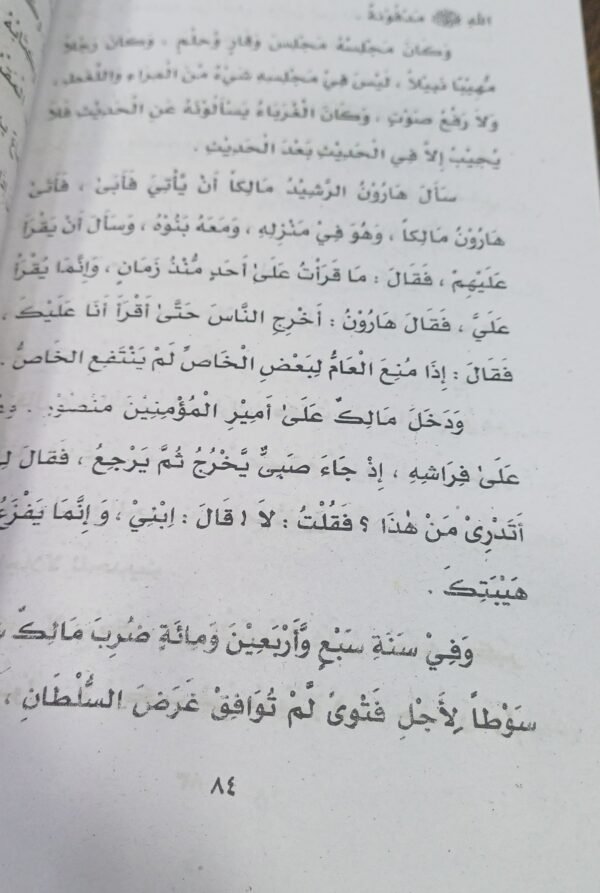 اللهِ ﷺ مَدْفُوْنَةٌ .
وَكَانَ مَجْلِسُهُ مَجْلِسَ وَقَارٍ وَّحِلْمٍ ، وَكَانَ رَجُلاً
مُّهِيْبًا نَبِيْلاً ، لَيْسَ فِيْ مَجْلِسِهِ شَيْءٌ مِّنَ الْمِرَاءِ وَاللَّغَطِ ،
وَلاَ رَفْعُ صَوْتٍ ، وَكَانَ الْغُرَبَاءُ يَسْأَلُوْنَهُ عَنِ الْحَدِيْثِ فَلاَ
يُجِيْبُ إِلاَّ فِي الْحَدِيْثِ بَعْدَ الْحَدِيْثِ .
سَأَلَ هَارُوْنُ الرَّشِيْدُ مَالِكاً أَنْ يُّأْتِيَ فَأَبىٰ ، فَأَتىٰ
هَارُوْنُ مَالِكاً ، وَهُوَ فِيْ مَنْزِلِهِ ، وَمَعَهُ بَنُوْهُ ، وَسَأَلَ أَنْ يَقْرَأَ
عَلَيْهِمْ ، فَقَالَ : مَا قَرَأْتُ عَلىٰ أَحَدٍ مُّنْذُ زَمَانٍ ، وَإِنَّمَا يُقْرَأُ
عَلَيَّ ، فَقَالَ هَارُوْنُ : أَخْرِجِ النَّاسَ حَتّىٰ أَقْرَأَ أَنَا عَلَيْكَ ،
فَقَالَ : إِذَا مُنِعَ الْعَامُّ لِبَعْضِ الْخَاصِّ لَمْ يَنْتَفِعِ الخَاصُّ .
وَدَخَلَ مَالِكٌ عَلىٰ أَمِيْرِ الْمُؤْمِنِيْنَ مَنْصُوْرٍ .
عَلىٰ فِرَاشِهِ ، إِذْ جَاءَ صَبِيٌّ يَّخْرُجُ ثُمَّ يَرْجِعُ ، فَقَالَ
أَتَدْرِىْ مَنْ هٰذَا ؟ فَقُلْتُ : لاَ ! قَالَ : اِبْنِيْ ، وَ إِنَّمَا يَفْزَعُ
هَيْبَتِكَ .
وَفِيْ سَنَةِ سَبْعٍ وَّأَرْبَعِيْنَ وَمِائَةٍ ضُرِبَ مَالِكٌ
سَوْطاً لِأَجْلِ فَتْوىٰ لَّمْ تُوَافِقْ غَرَضَ السُّلْطَانِ ،
٨٤